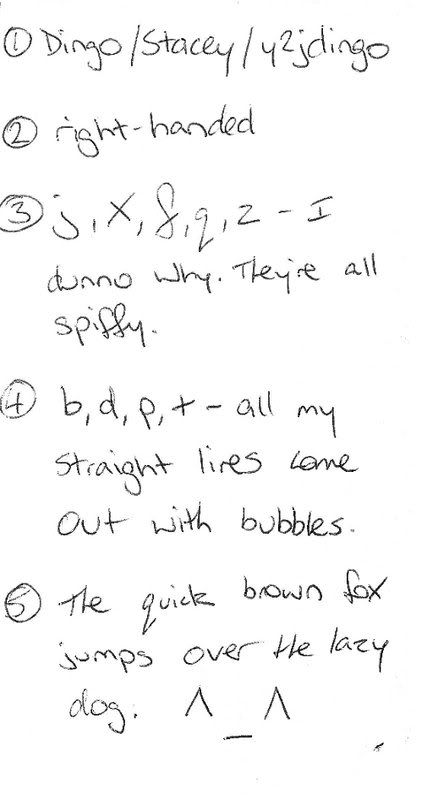 ① Dingo/Stacey/y2jdingo
② right-handed
③ j, x, f, q, z - I
dunno why. They're all
spiffy.
④ b, d, p, t - all my
straight lines come
out with bubbles.
⑤ The quick brown fox
jumps over the lazy
dog. ^_^